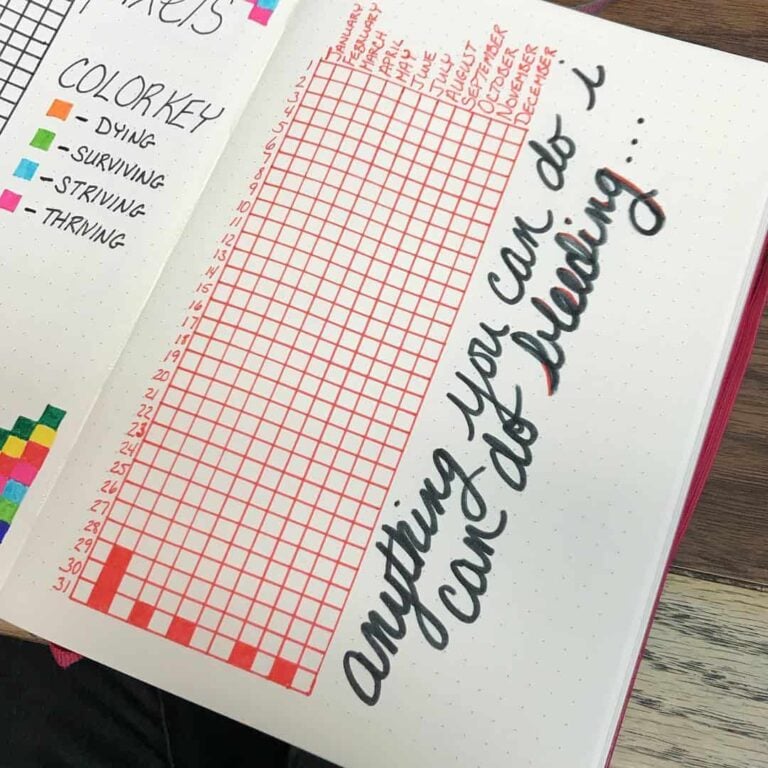 Pixels
COLOR KEY
- DYING
- SURVIVING
- STRIVING
- THRIVING
JANUARY
FEBRUARY
MARCH
APRIL
MAY
JUNE
JULY
AUGUST
SEPTEMBER
OCTOBER
NOVEMBER
DECEMBER
1
2
3
4
5
6
7
8
9
10
11
12
13
14
15
16
17
18
19
20
21
22
23
24
25
26
27
28
29
30
31
anything you can do i
can do bleeding...